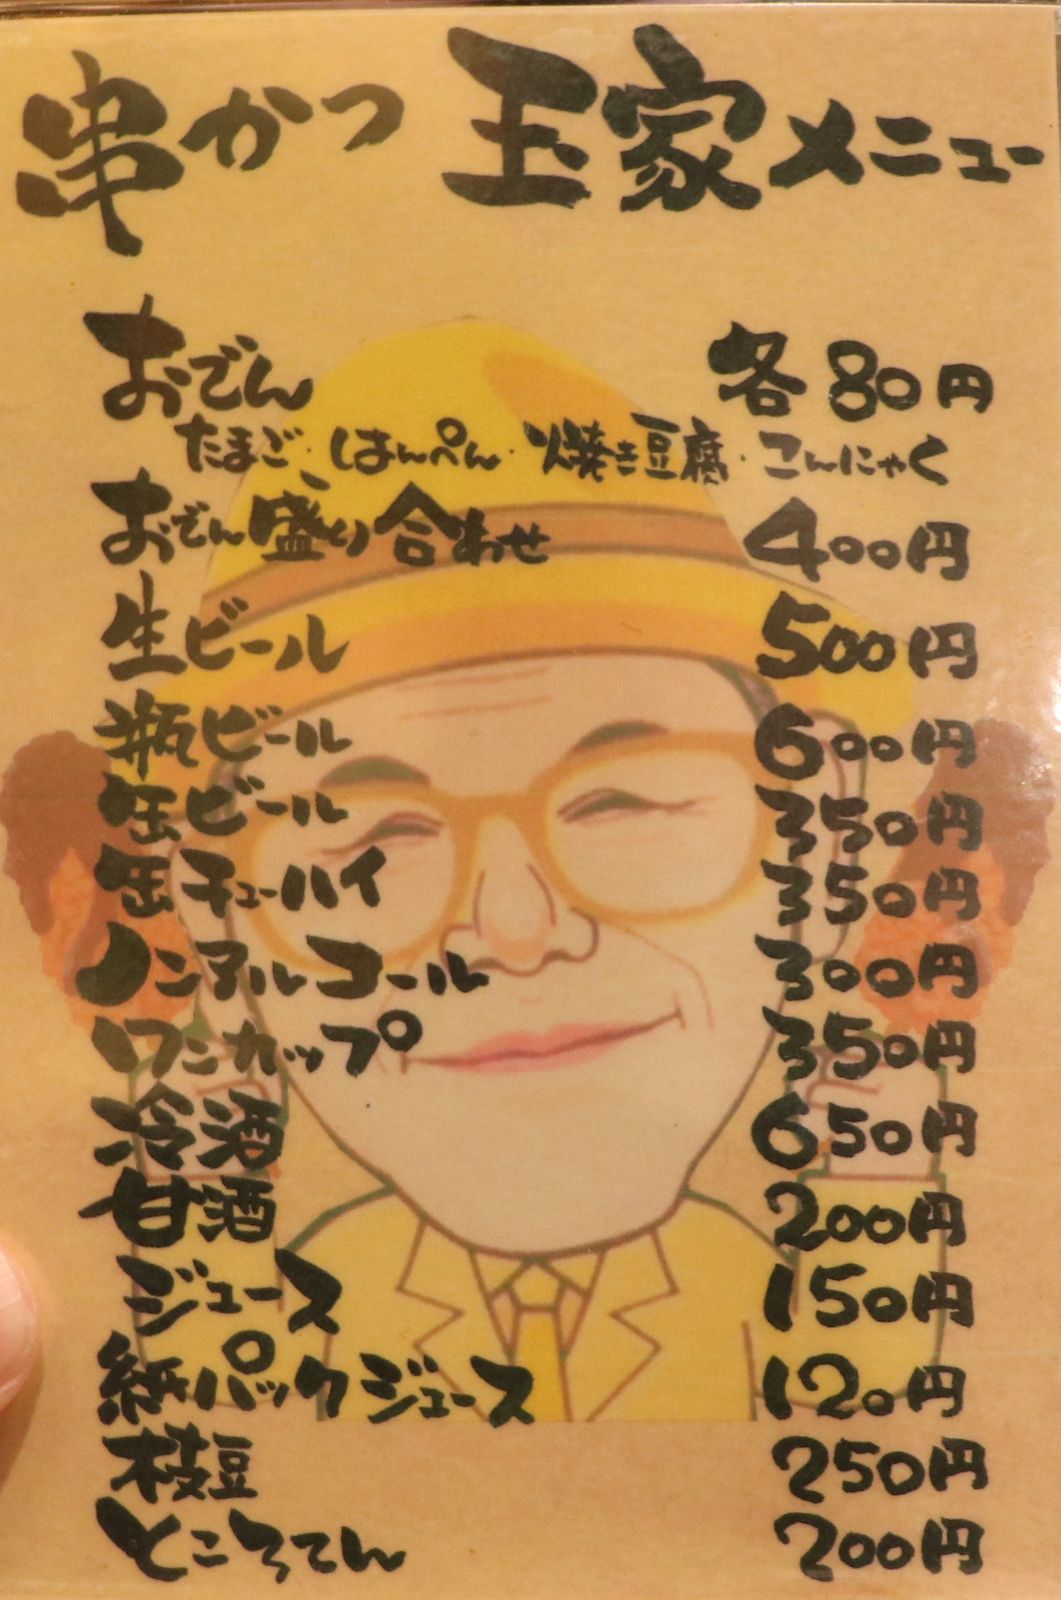 串かつ 玉家メニュー
おでん 各80円
たまご・はんぺん・焼き豆腐・こんにゃく
おでん盛り合わせ 400円
生ビール 500円
瓶ビール 600円
缶ビール 350円
缶チューハイ 350円
ノンアルコール 300円
ワンカップ 350円
冷酒 650円
甘酒 200円
ジュース 150円
紙パックジュース 120円
枝豆 250円
ところてん 200円